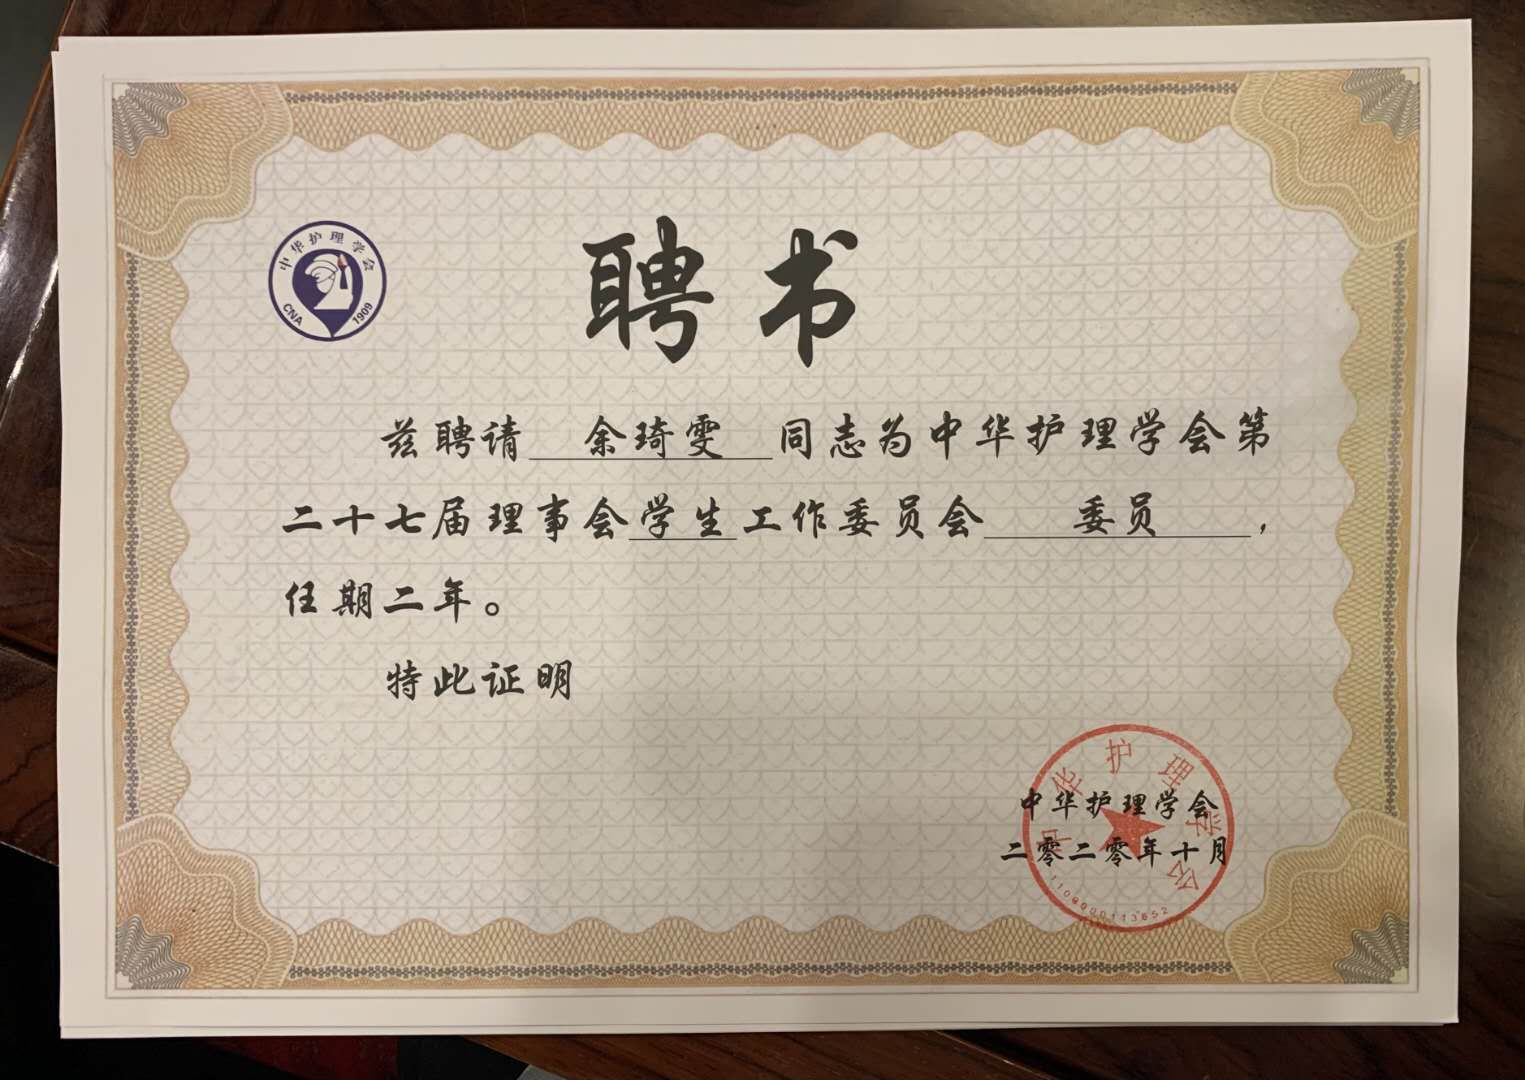 中华护理学会
CNA 1909
聘书
兹聘请 余琦雯 同志为中华护理学会第
二十七届理事会学生工作委员会 委员 ，
任期二年。
特此证明
中华护理学会
中华护理学会
二零二零年十月